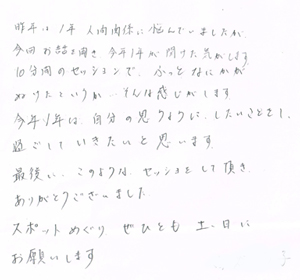 昨年は1年 人間関係に悩んでいましたが
今回 お話を聞き 今年1年が開けた気がします
10分間のセッションで、ふっと なにかが
ぬけたというか…そんな感じがします
今年1年は、自分の思うように、したいことをし、
過ごしていきたいと思います
最後に、このような、セッションをして頂き
ありがとうございました
スポットめぐり ぜひとも 土、日に
お願いします